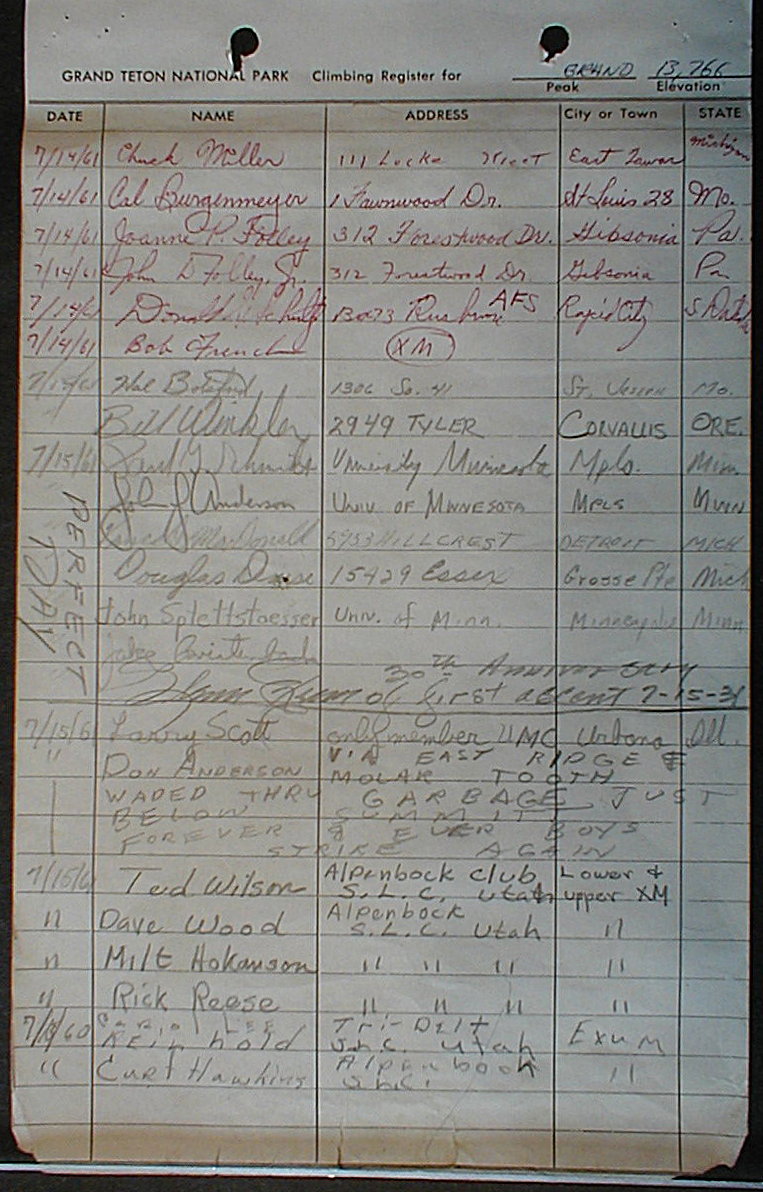 GRAND TETON NATIONAL PARK Climbing Register for GRAND 13,766
Peak Elevation
DATE NAME ADDRESS City or Town STATE
7/14/61 Chuck Miller 111 Locke Street East Tawas Michigan
7/14/61 Cal Burgenmeyer 1 Fawnwood Dr. St Luis 28 Mo.
7/14/61 Joanne P. Folley 312 Forestwood Dr. Gibsonia Pa.
7/14/61 John D Folley, Jr. 312 Forestwood Dr Gibsonia Pa
7/14/61 Donald AFS Rapid City S. Dak
7/14/61 Bob French XM
Hal 1306 So. 41 St. Mo.
Bill Winkler 2949 TYLER CORVALLIS ORE.
7/15/61 University Minnesota Mpls. Minn.
John J Anderson UNIV. OF MINNESOTA MPLS MINN
MacDonald 5933 HILLCREST DETROIT MICH
Douglas 15429 Essex Grosse Pte Mich
John Splettstoesser Univ. of Minn. Minneapolis Minn
PERFECT
DAY
Jake
30TH ANNIVERSARY
Glenn Exum of first ascent 7-15-31
7/15/61 Larry Scott only member UMC Urbana Ill.
" DON ANDERSON VIA EAST RIDGE &
MOLAR TOOTH
WADED THRU GARBAGE JUST
BELOW SUMMIT
FOREVER & EVER BOYS
STRIKE AGAIN
7/15/61 Ted Wilson Alpenbock club Lower &
S.L.C. Utah upper XM
" Dave Wood Alpenbock
S.L.C. Utah "
" Milt Hokanson " " " "
" Rick Reese " " " "
LEE Tri-Delt
Reinhold S.L.C. Utah Exum
" Curt Hawkins Alpenbock "
S.L.C.